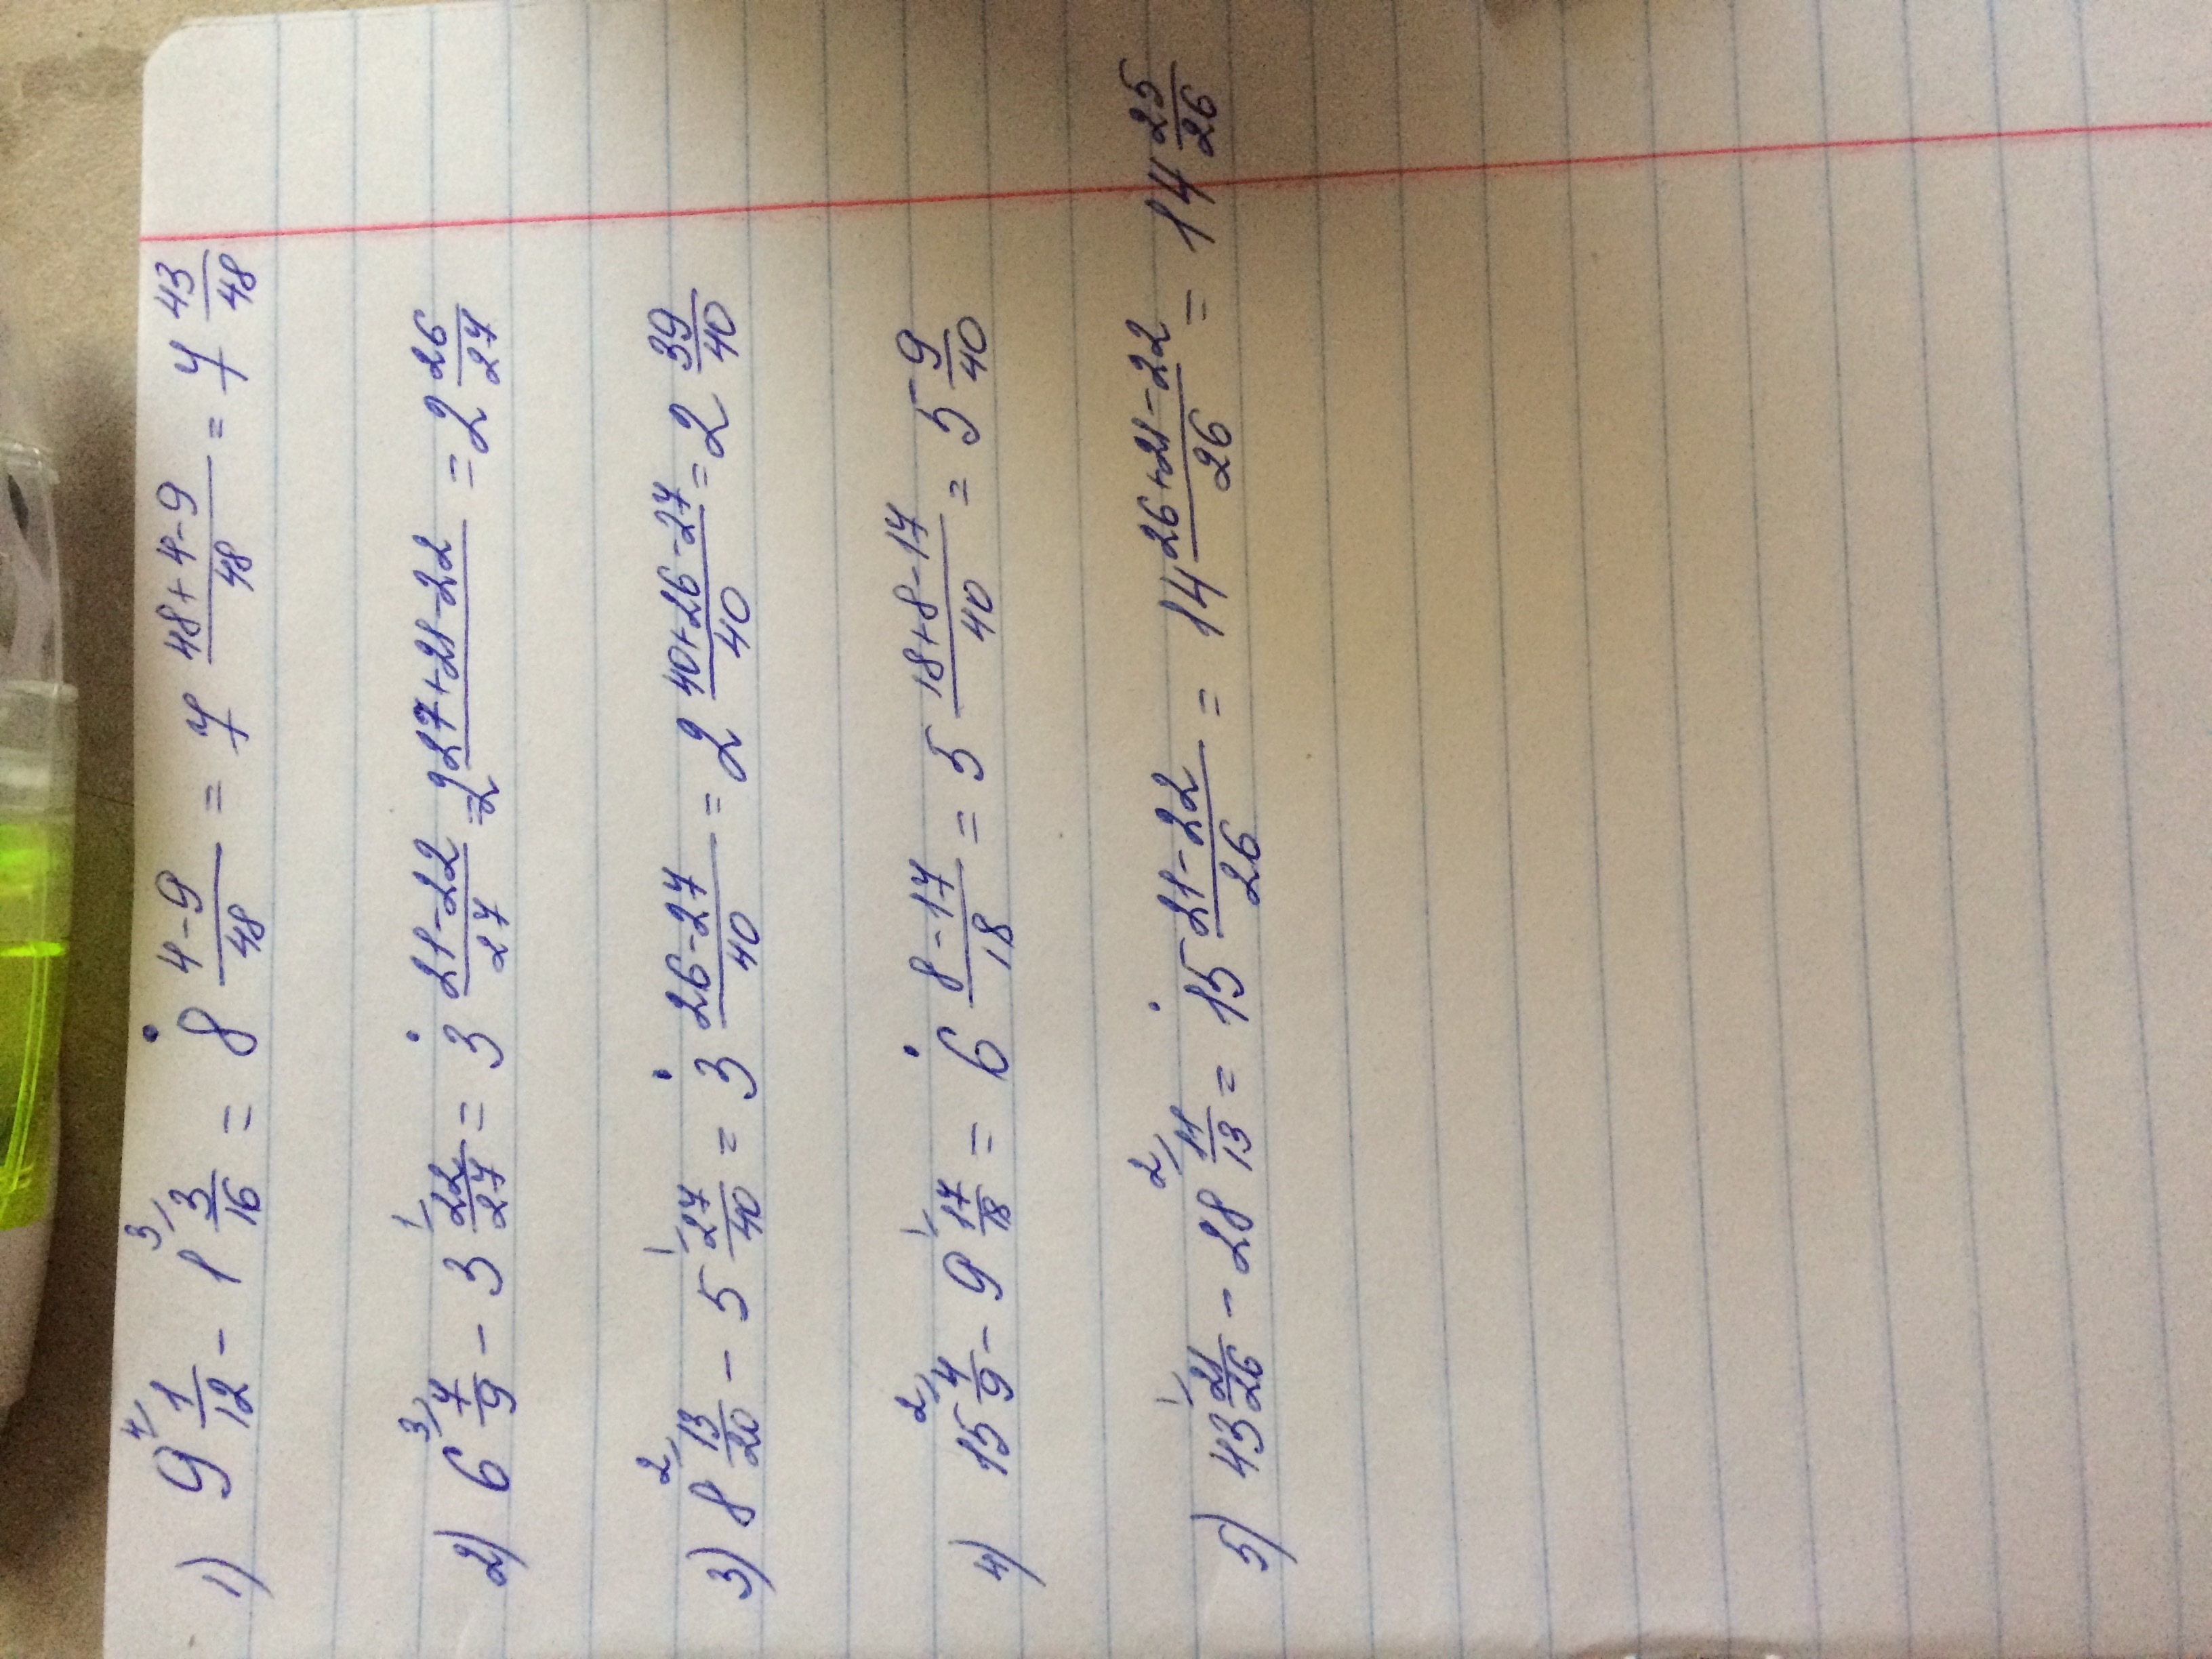 1) 9 ⁴⁄ 1/12 - 1 ³⁄ 3/16 = 8 (4-9)/48 = 7 (48+4-9)/48 = 7 43/48
2) 6 ³⁄ 7/9 - 3 ¹⁄ 22/27 = 3 (21-22)/27 = 2 (27+21-22)/2 = 2 26/27
3) 8 ²⁄ 13/20 - 5 ¹⁄ 27/40 = 3 (26-27)/40 = 2 (40+26-27)/40 = 2 39/40
4) 15 ²⁄ 4/9 - 9 ¹⁄ 17/18 = 6 (8-17)/18 = 5 (18+8-17)/40 = 5 9/40
5) 43 ¹⁄ 21/26 - 28 ²⁄ 11/13 = 15 (21-22)/26 = 14 (26+21-22)/26 = 14 25/26